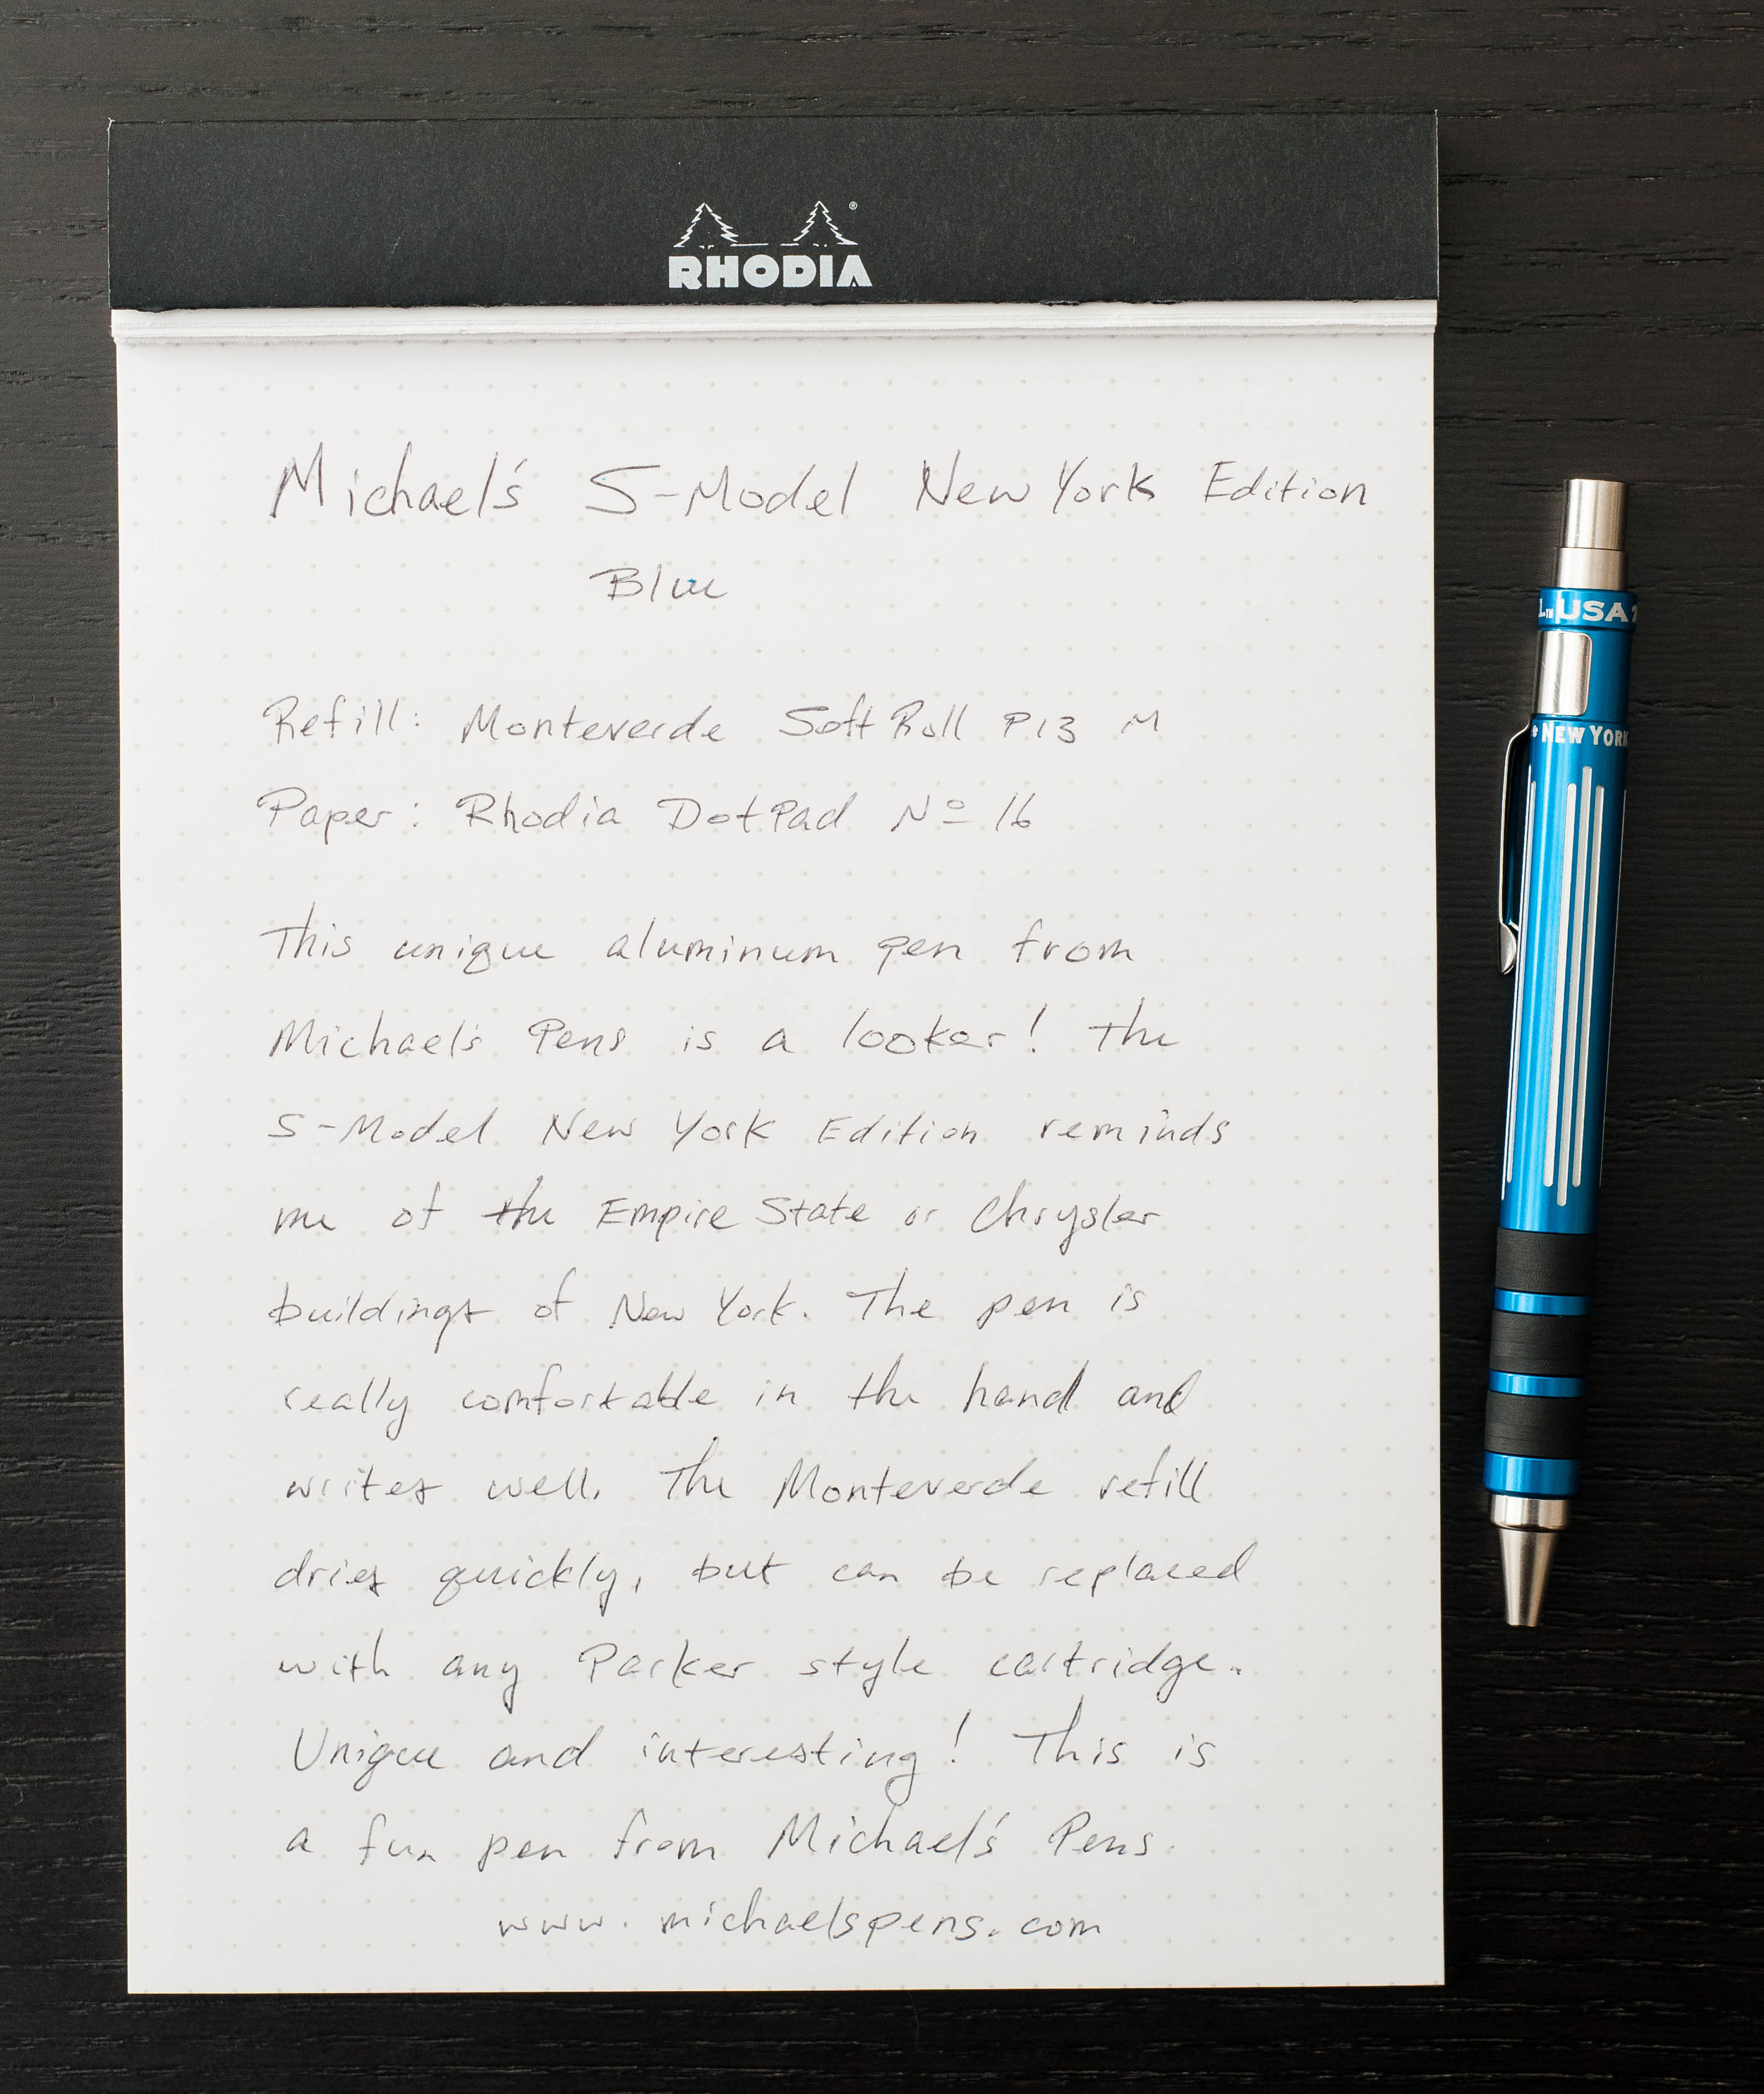 RHODIA
Michael's S-Model New York Edition
Blue
Refill: Monteverde Soft Roll P13 M
Paper: Rhodia DotPad Nº 16
This unique aluminum pen from
Michael's Pens is a looker! The
S-Model New York Edition reminds
me of the Empire State or Chrysler
buildings of New York. The pen is
really comfortable in the hand and
writes well. The Monteverde refill
dries quickly, but can be replaced
with any Parker style cartridge.
Unique and interesting! This is
a fun pen from Michael's Pens.
www.michaelspens.com
USA
NEW YORK